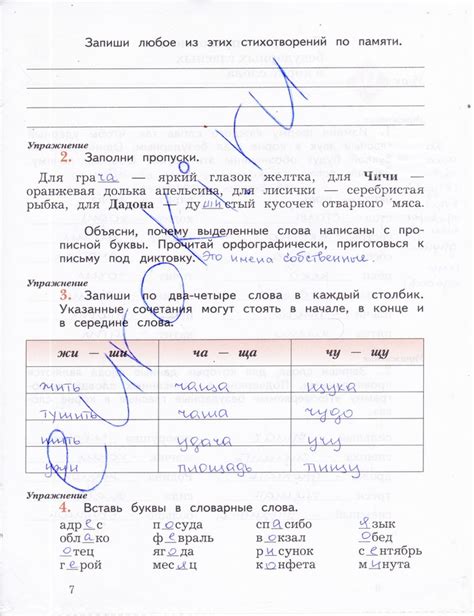 Запиши любое из этих стихотворений по памяти.
Упражнение
2. Заполни пропуски.
Для грача — яркий глазок желтка, для Чичи —
оранжевая долька апельсина, для лисички — серебристая
рыбка, для Дадона — душистый кусочек отварного мяса.
Объясни, почему выделенные слова написаны с про-
писной буквы. Прочитай орфографически, приготовься к
письму под диктовку. Это имена собственные.
Упражнение
3. Запиши по два-четыре слова в каждый столбик.
Указанные сочетания могут стоять в начале, в конце и
в середине слова.
жи — ши ча — ща чу — щу
жить чаща щука
тушить чаша чудо
шить удача учу
площадь пищу
Упражнение
4. Вставь буквы в словарные слова.
адрес посуда спасибо язык
облако февраль вокзал обед
отец ягода рисунок сентябрь
герой месяц конфета минута
7